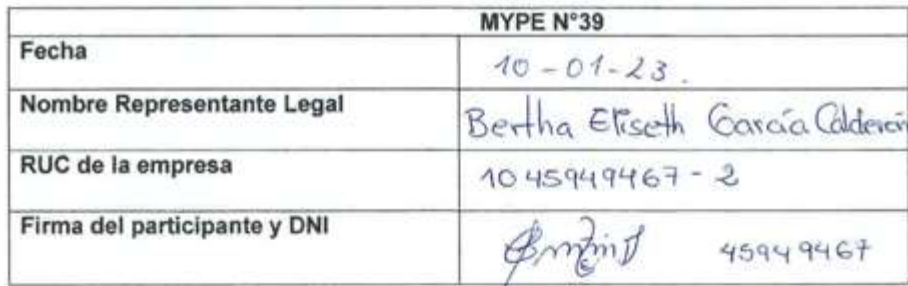 MYPE N°39
Fecha 10-01-23.
Nombre Representante Legal Bertha Eliseth García Calderón
RUC de la empresa 1045949467-2
Firma del participante y DNI 45949467